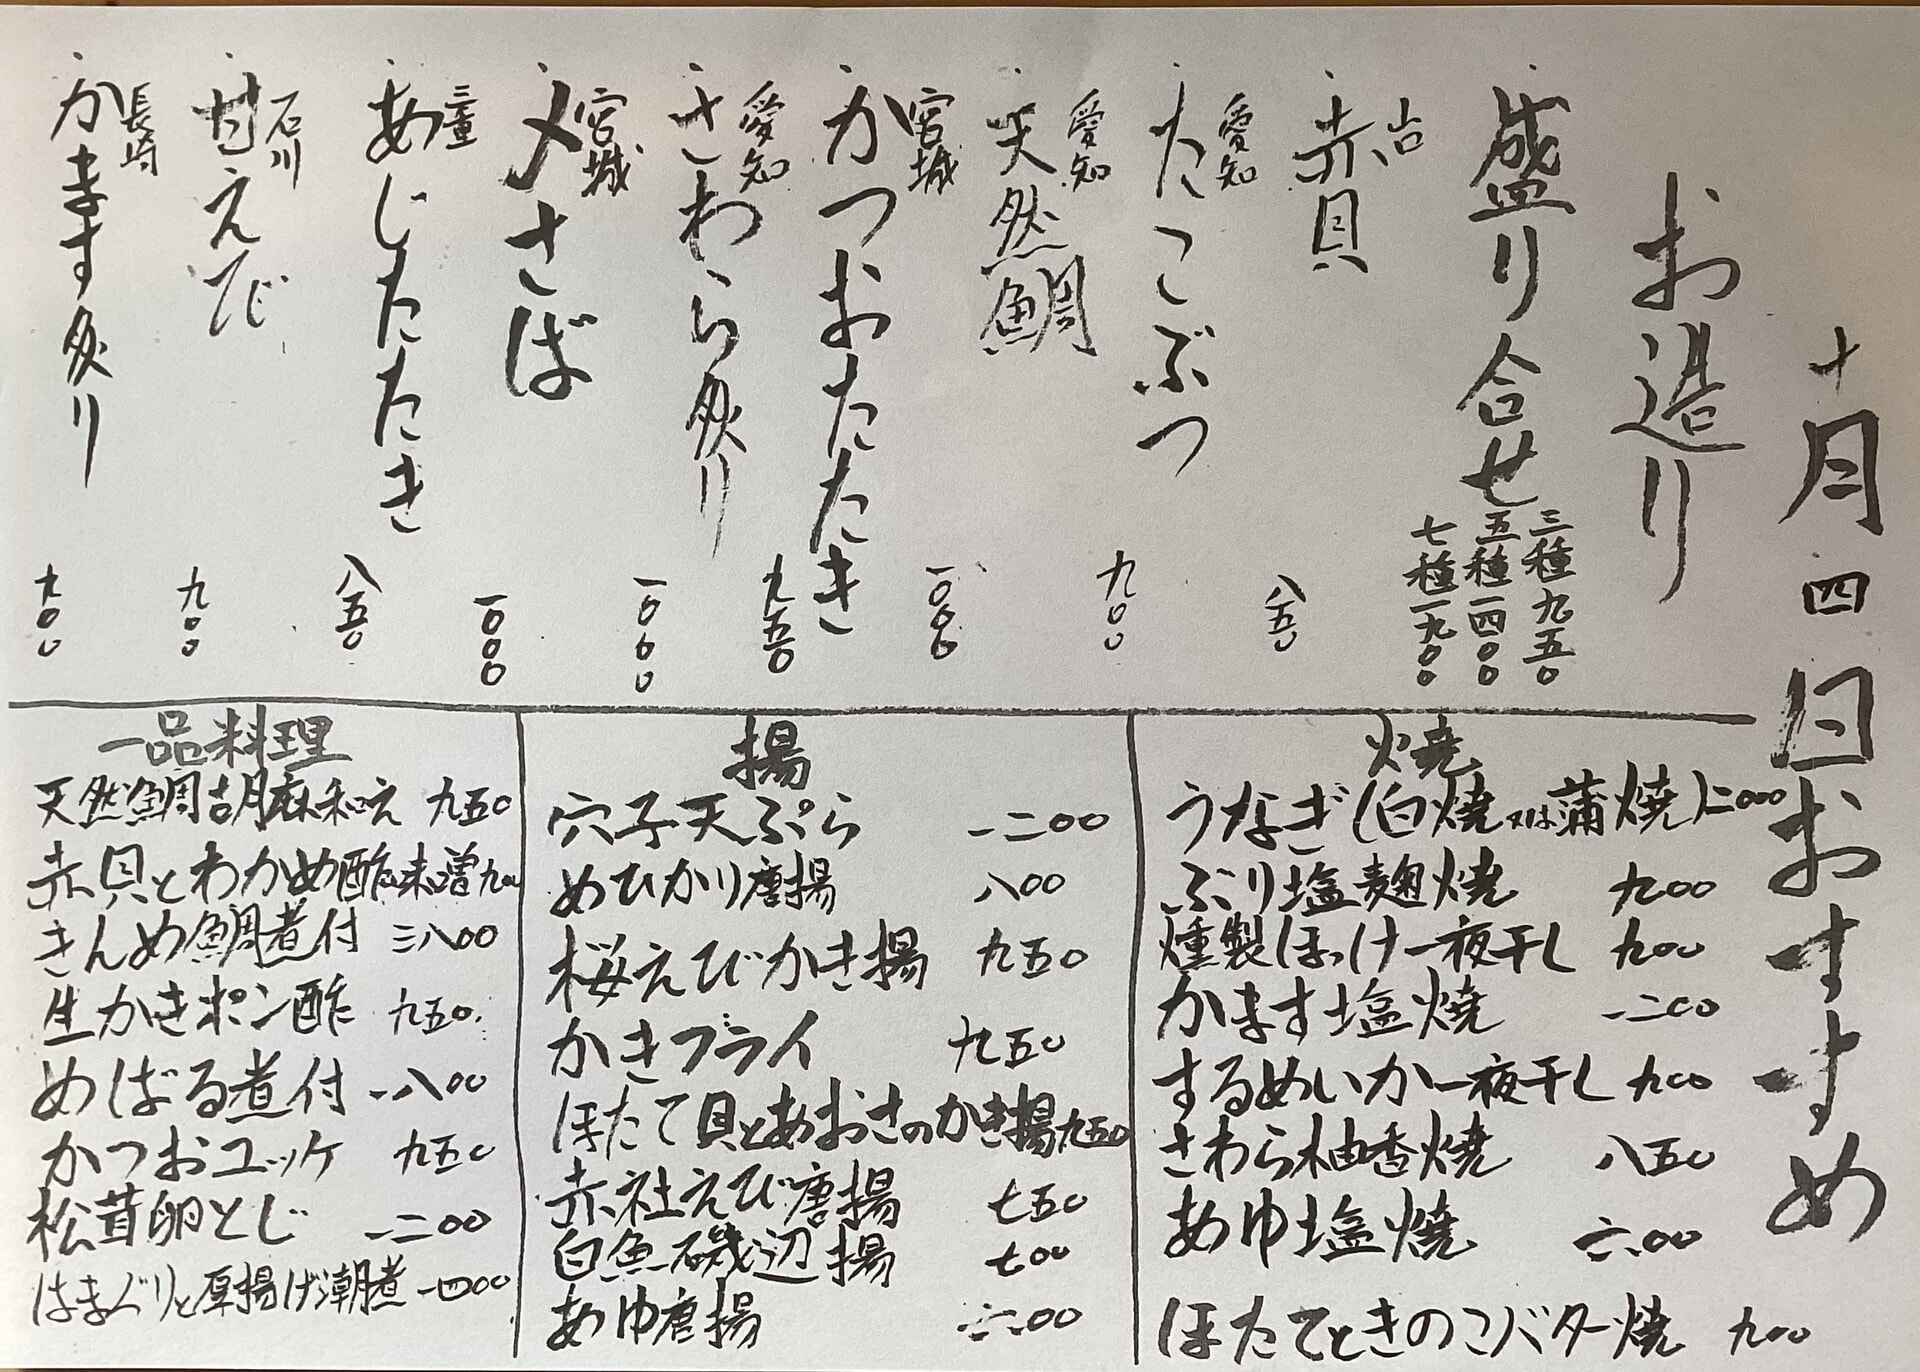 十月四日おすすめ
お造り
盛り合せ
三種九五〇
五種一四〇〇
七種一九〇〇
・赤貝 山口 八五〇
・たこぶつ 愛知 九〇〇
・天然鯛 愛知 一〇〇〇
・かつおたたき 宮城 九五〇
・さわら炙り 愛知 一〇〇〇
・〆さば 宮城 一〇〇〇
・あじたたき 三重 八五〇
・甘えび 石川 九〇〇
・かます炙り 長崎 九〇〇
焼
うなぎ(白焼又は蒲焼)二〇〇〇
ぶり塩麹焼 九〇〇
燻製ほっけ一夜干し 九〇〇
かます塩焼 一二〇〇
するめいか一夜干し 九〇〇
さわら柚香焼 八五〇
あゆ塩焼 六〇〇
ほたてときのこバター焼 九〇〇
揚
穴子天ぷら 一二〇〇
めひかり唐揚 八〇〇
桜えびかき揚 九五〇
かきフライ 九五〇
ほたて貝とあおさのかき揚九五〇
赤社えび唐揚 七五〇
白魚磯辺揚 七〇〇
あゆ唐揚 六〇〇
一品料理
天然鯛胡麻和え 九五〇
赤貝とわかめ酢味噌九〇〇
きんめ鯛煮付 三八〇〇
生かきポン酢 九五〇
めばる煮付 一八〇〇
かつおユッケ 九五〇
松茸卵とじ 一二〇〇
はまぐりと厚揚げ潮煮 一四〇〇